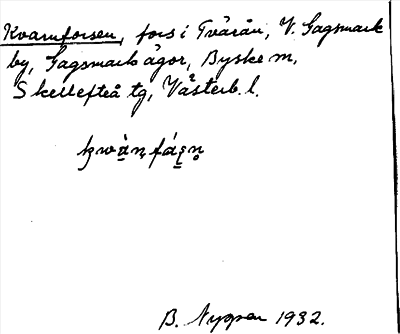 Kvarnforsen, fors i Tvärån, V. Gagsmark
by, Gagsmarks ägor, Byske sn,
Skellefteå tg, Västerb. l.
B. Nygren 1932.